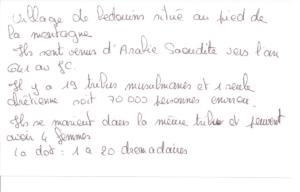 Village de bedouins situé au pied de
la montagne
Ils sont venus d'Arabie Saoudite vers l'an
641 av JC.
Il y a 19 tribus musulmanes et 1 seule
chrétienne soit 70 000 personnes environ.
Ils se marient dans la même tribu et peuvent
avoir 4 femmes
la dot : 1 à 20 dromadaires